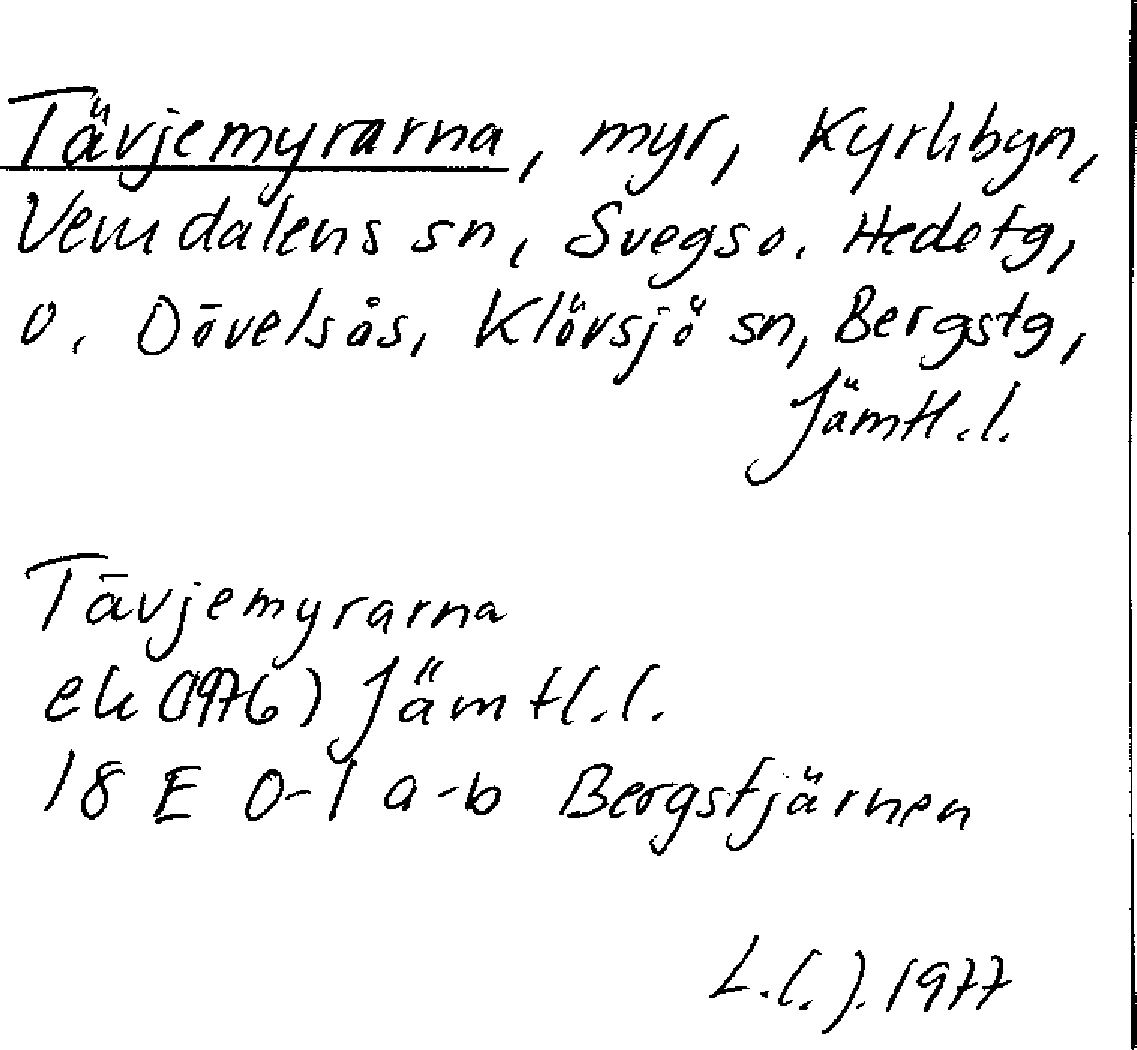 Tävjemyrarna, myr, Kyrkbyn,
Vemdalens sn, Svegs o. Hedetg,
o. Dövelsås, Klövsjö sn, Bergstg,
Jämtl.l.
Tävjemyrarna
ek (1976) Jämtl.l.
18 E 0-1 a-b Bergstjärnen
L.C.J. 1977